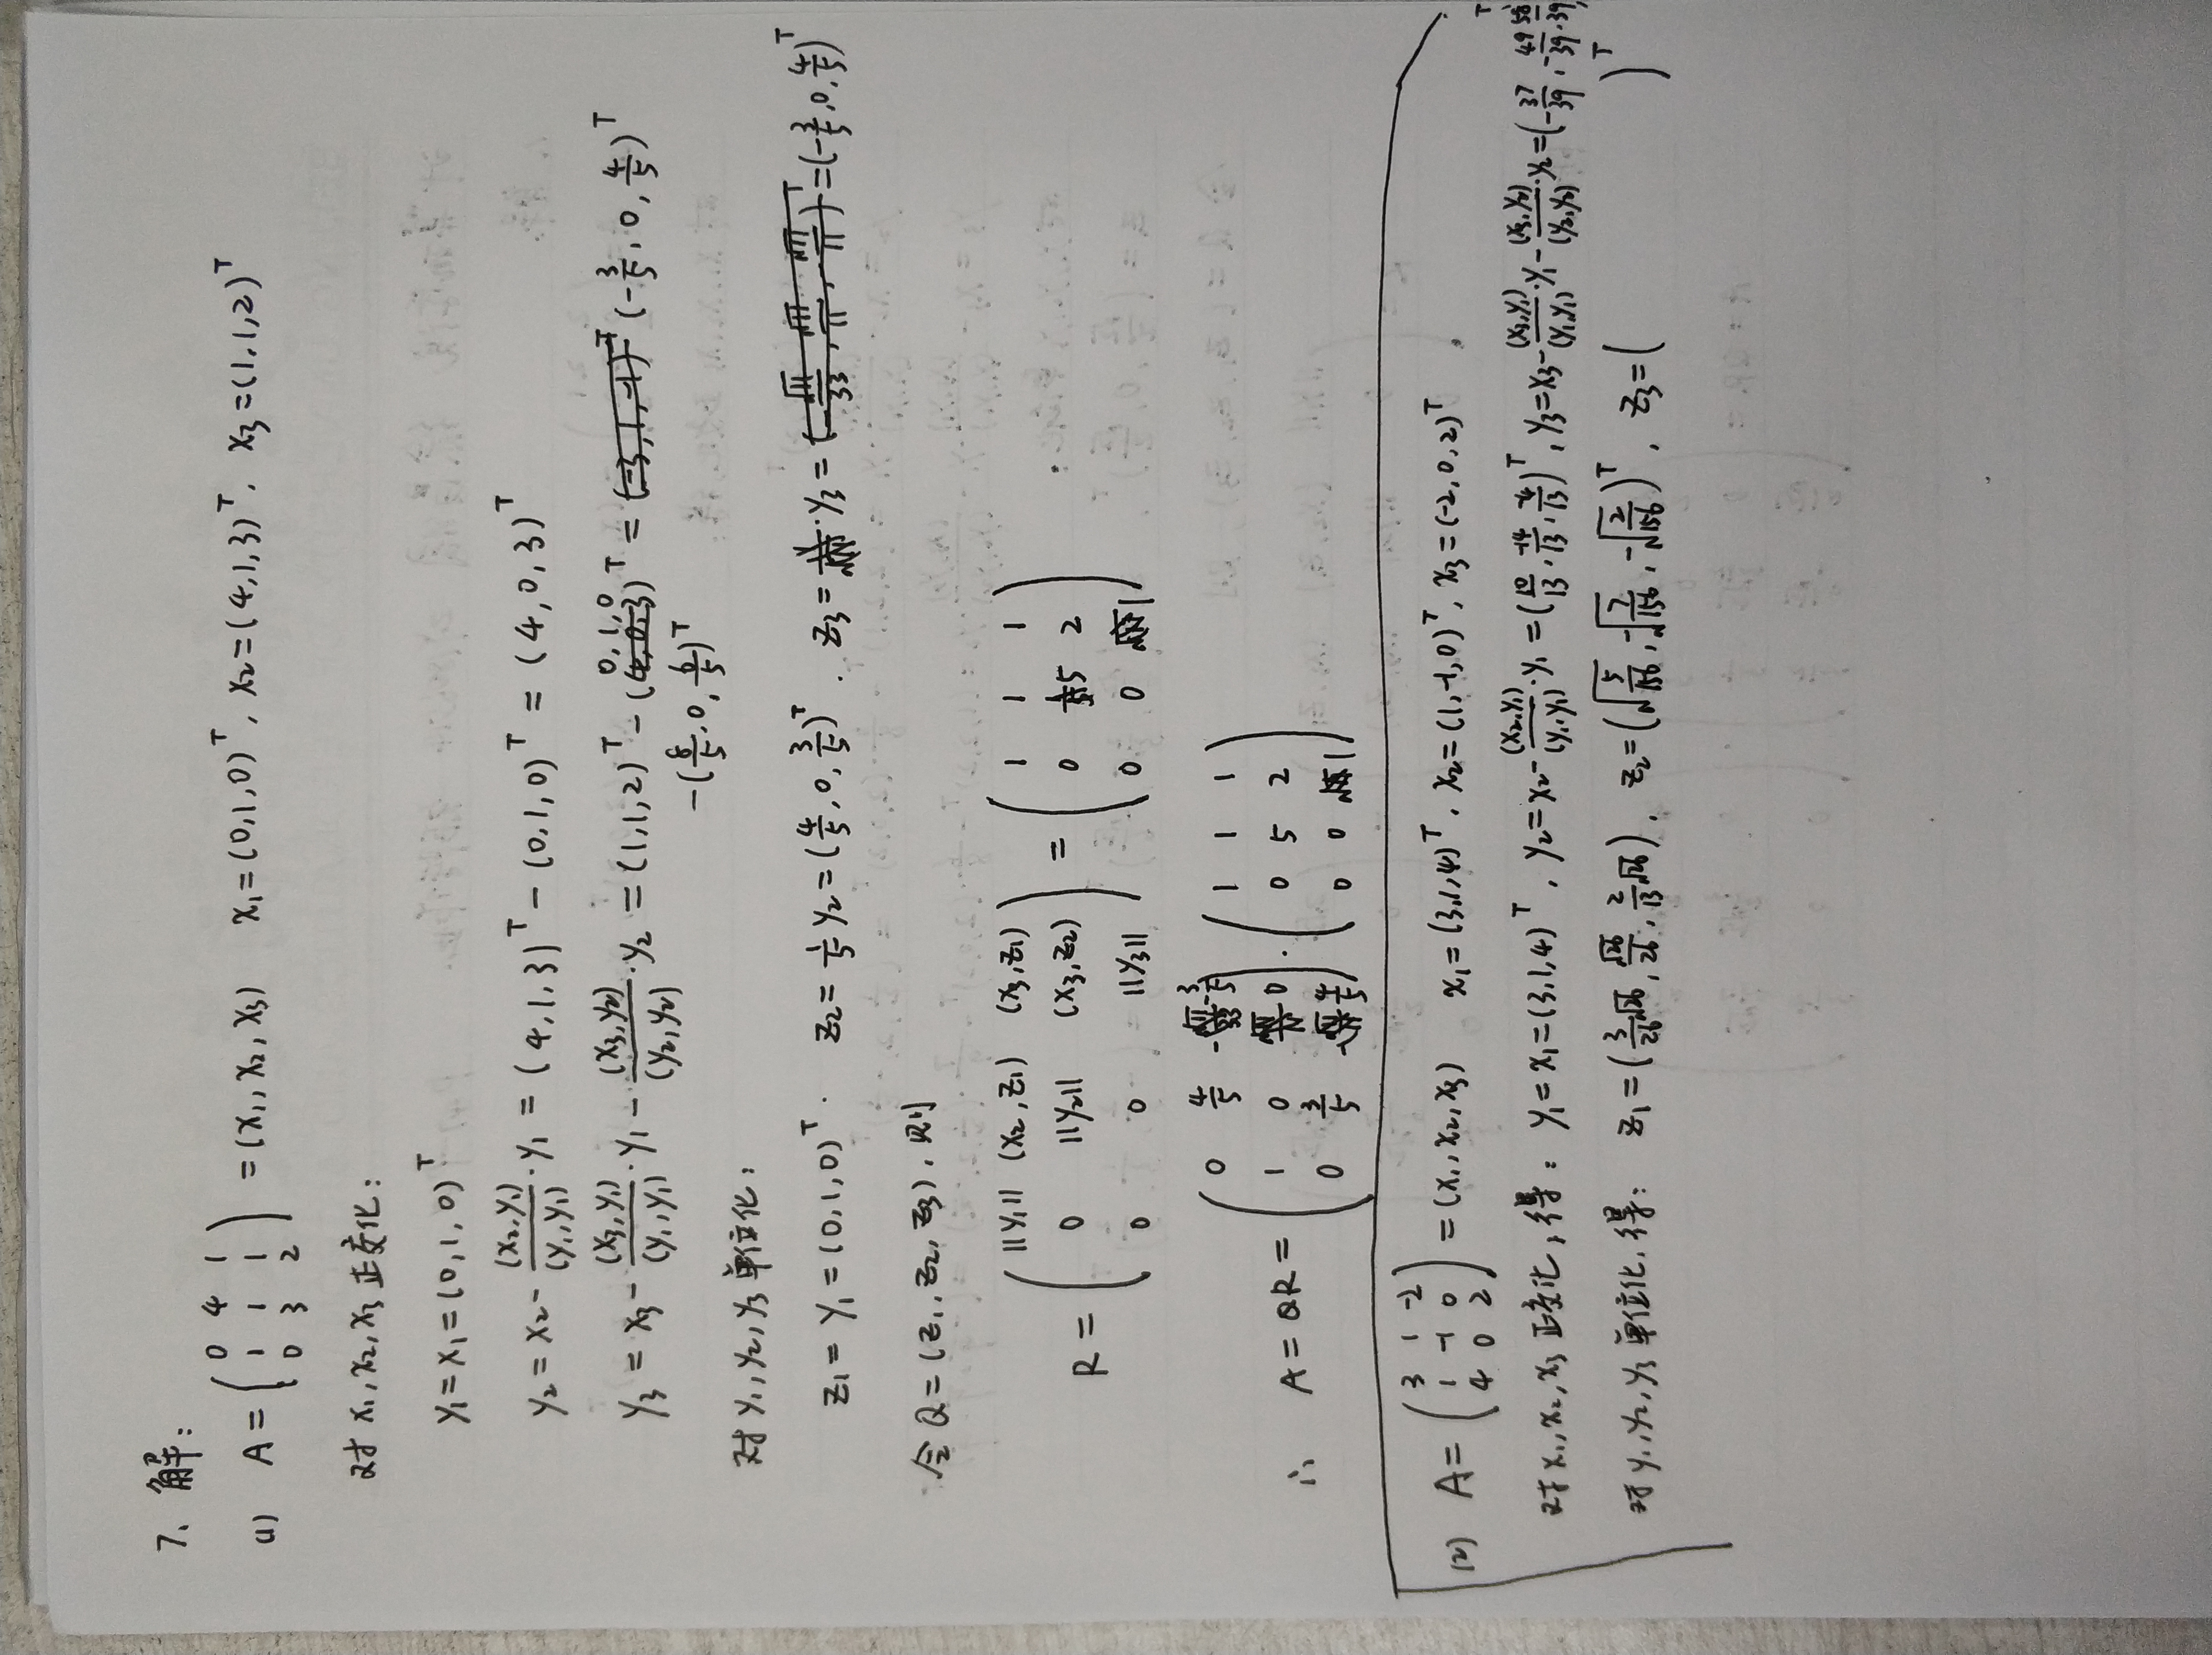 7. 解:
(1) A = ( 0 4 1 ; 1 1 1 ; 0 3 2 ) = (x₁, x₂, x₃) x₁=(0,1,0)ᵀ, x₂=(4,1,3)ᵀ, x₃=(1,1,2)ᵀ
对 x₁,x₂,x₃ 正交化:
y₁=x₁=(0,1,0)ᵀ
y₂=x₂-(x₂,y₁)/(y₁,y₁)·y₁=(4,1,3)ᵀ-(0,1,0)ᵀ=(4,0,3)ᵀ
y₃=x₃-(x₃,y₁)/(y₁,y₁)·y₁-(x₃,y₂)/(y₂,y₂)·y₂=(1,1,2)ᵀ-(0,1,0)ᵀ=(-3/5,0,4/5)ᵀ
-(8/5,0,6/5)ᵀ
对 y₁,y₂,y₃ 单位化:
z₁=y₁=(0,1,0)ᵀ. z₂=1/5 y₂=(4/5,0,3/5)ᵀ. z₃=y₃=(-3/5,0,4/5)ᵀ
令 Q=(z₁,z₂,z₃),则
R = ( ||y₁|| (x₂,z₁) (x₃,z₁) ; 0 ||y₂|| (x₃,z₂) ; 0 0 ||y₃|| ) = ( 1 1 1 ; 0 5 2 ; 0 0 1 )
∴ A=QR= ( 0 4/5 -3/5 ; 1 0 0 ; 0 3/5 4/5 ) · ( 1 1 1 ; 0 5 2 ; 0 0 1 )
(2) A= ( 3 1 -2 ; 1 -1 0 ; 4 0 2 ) =(x₁,x₂,x₃) x₁=(3,1,4)ᵀ, x₂=(1,-1,0)ᵀ, x₃=(-2,0,2)ᵀ.
对 x₁,x₂,x₃ 正交化,得: y₁=x₁=(3,1,4)ᵀ, y₂=x₂-(x₂,y₁)/(y₁,y₁)·y₁=(10/13,-14/13,-4/13)ᵀ, y₃=x₃-(x₃,y₁)/(y₁,y₁)·y₁-(x₃,y₂)/(y₂,y₂)·y₂=(-37/39,-49/39,
对 y₁,y₂,y₃ 单位化,得: z₁=(3/26√26, √26/26, 2/13√26). z₂=( )ᵀ, z₃=( )ᵀ